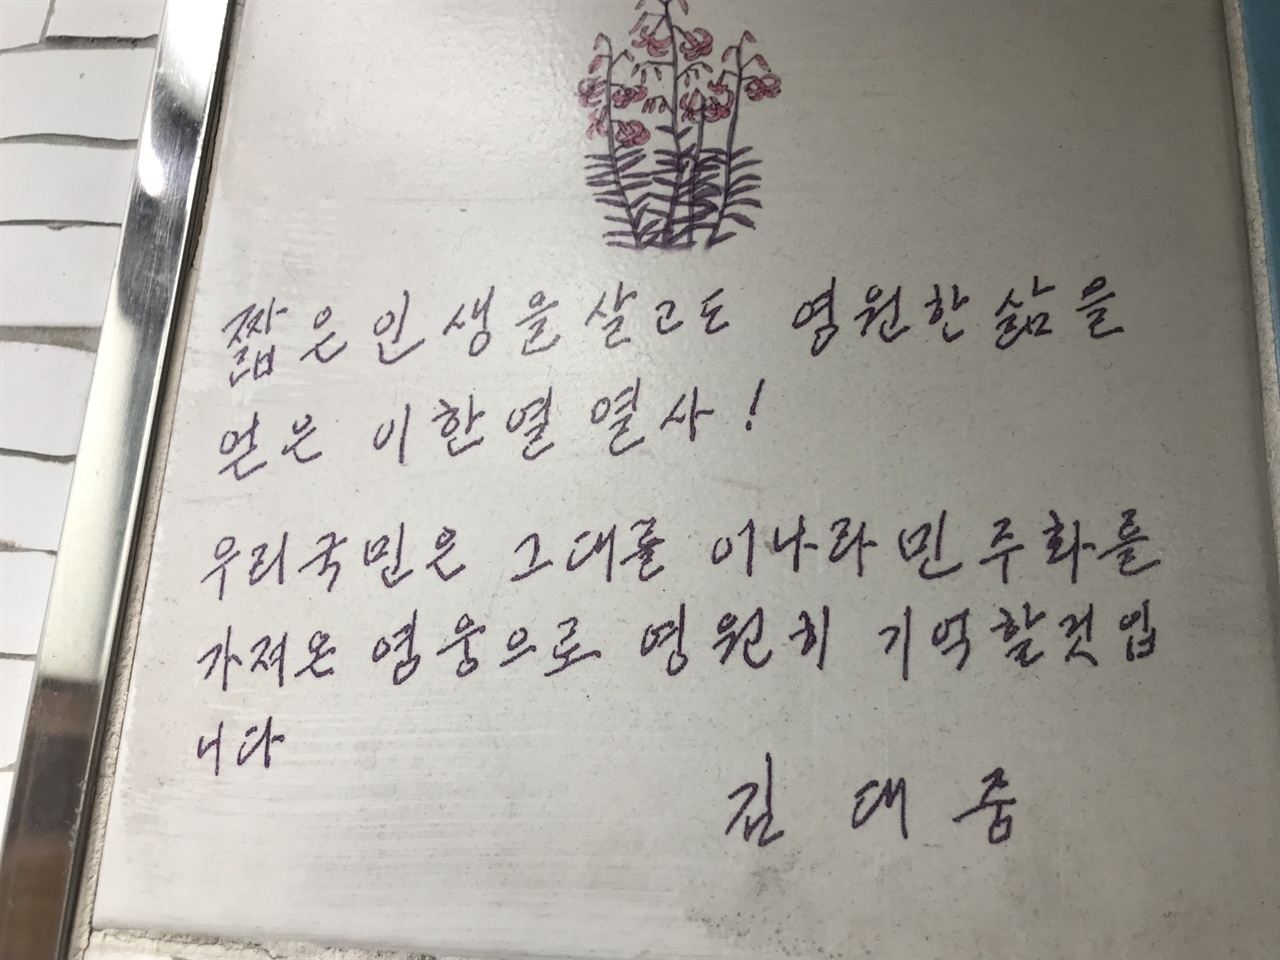 짧은 인생을 살고도 영원한 삶을
얻은 이한열 열사!
우리국민은 그대를 이나라 민주화를
가져온 영웅으로 영원히 기억할것입
니다
김대중